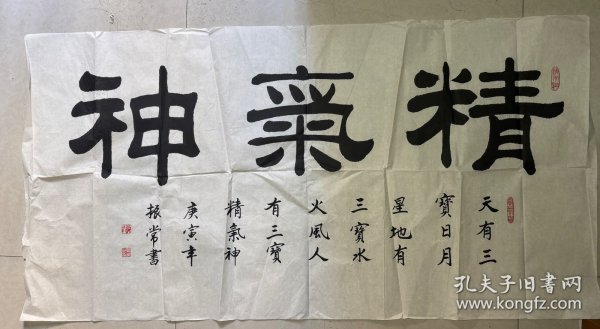 精氣神
天有三
寶日月
星地有
三寶水
火風人
有三寶
精氣神
庚寅年
振常書
孔夫子旧书网
www.kongfz.com